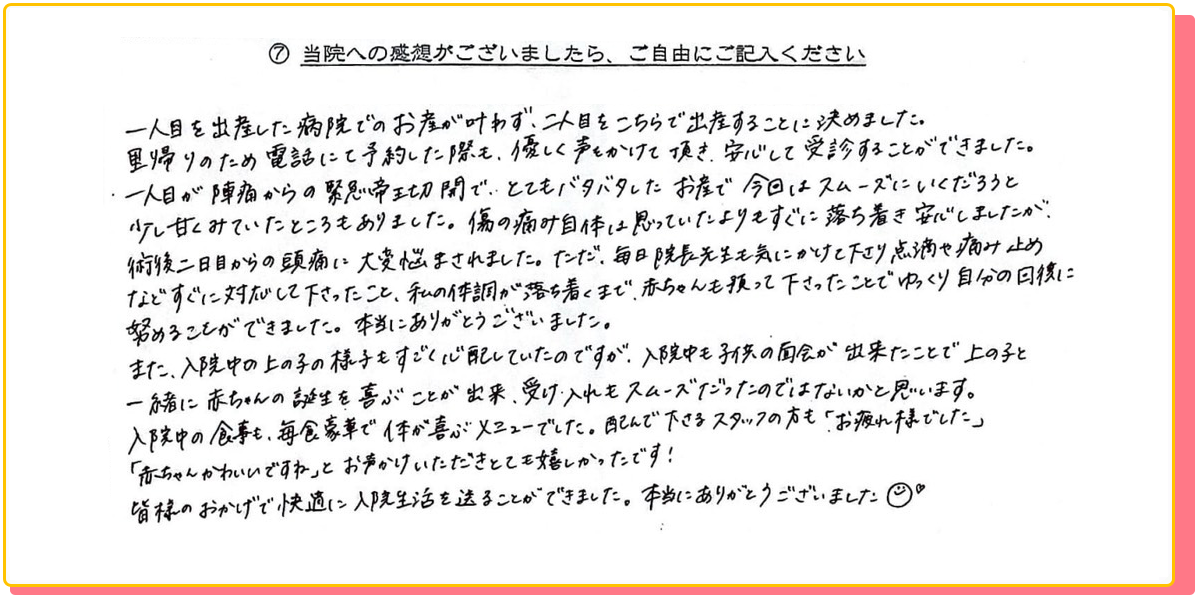 ⑦ 当院への感想がございましたら、ご自由にご記入ください
一人目を出産した病院でのお産が叶わず、二人目をこちらで出産することに決めました。
里帰りのため電話にて予約した際も、優しく声をかけて頂き、安心して受診することができました。
一人目が陣痛からの緊急帝王切開で、とてもバタバタしたお産で今回はスムーズにいくだろうと
少し甘くみていたところもありました。傷の痛み自体は思っていたよりもすぐに落ち着き安心しましたが、
術後二日目からの頭痛に大変悩まされました。ただ、毎日院長先生も気にかけて下さり点滴や痛み止め
などすぐに対応して下さったこと、私の体調が落ち着くまで、赤ちゃんも預って下さったことでゆっくり自分の回復に
努めることができました。本当にありがとうございました。
また、入院中の上の子の様子もすごく心配していたのですが、入院中も子供の面会が出来たことで上の子と
一緒に赤ちゃんの誕生を喜ぶことが出来、受け入れもスムーズだったのではないかと思います。
入院中の食事も、毎食豪華で体が喜ぶメニューでした。配んで下さるスタッフの方も「お疲れ様でした」
「赤ちゃんかわいいですね」とお声かけいただきとても嬉しかったです！
皆様のおかげで快適に入院生活を送ることができました。本当にありがとうございました☺♡